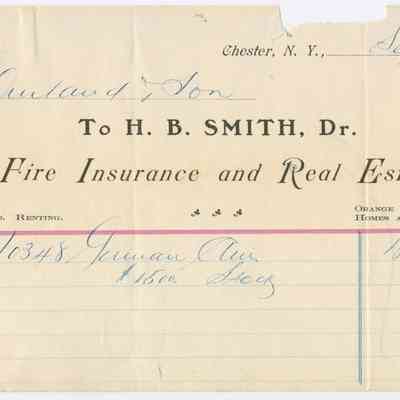 Chester, N. Y., Se
& Son
To H. B. SMITH, Dr.
Fire Insurance and Real Es
RENTING. ORANGE
HOMES A
10348 German Am
$1500 Stock